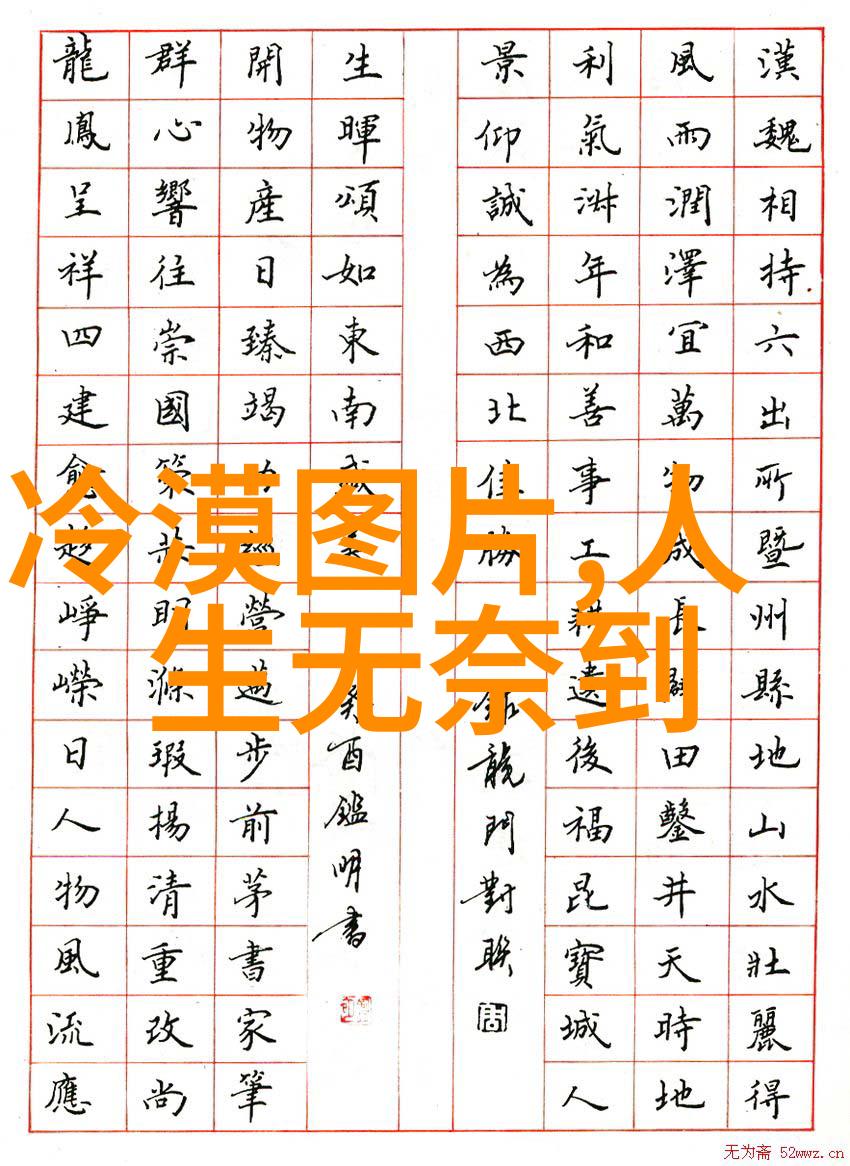 冷漠图片,人
生无奈到
漢魏相持六出所暨州縣地山水壯麗得
風雨潤澤宜萬物成長田鑿井天時地
利氣淑年和善事工耕遺後福昆寶城人
景仰誠為西北佳勝
錄龍門對聯
生暉頌如東南
癸酉鑑明書
開物產日臻竭力經營邁步前茅書家筆
群心響往崇國策明滌瑕揚清重改尚
龍鳳呈祥四建愈趨崢嶸日人物風流應
无为斋 52wwz.cn